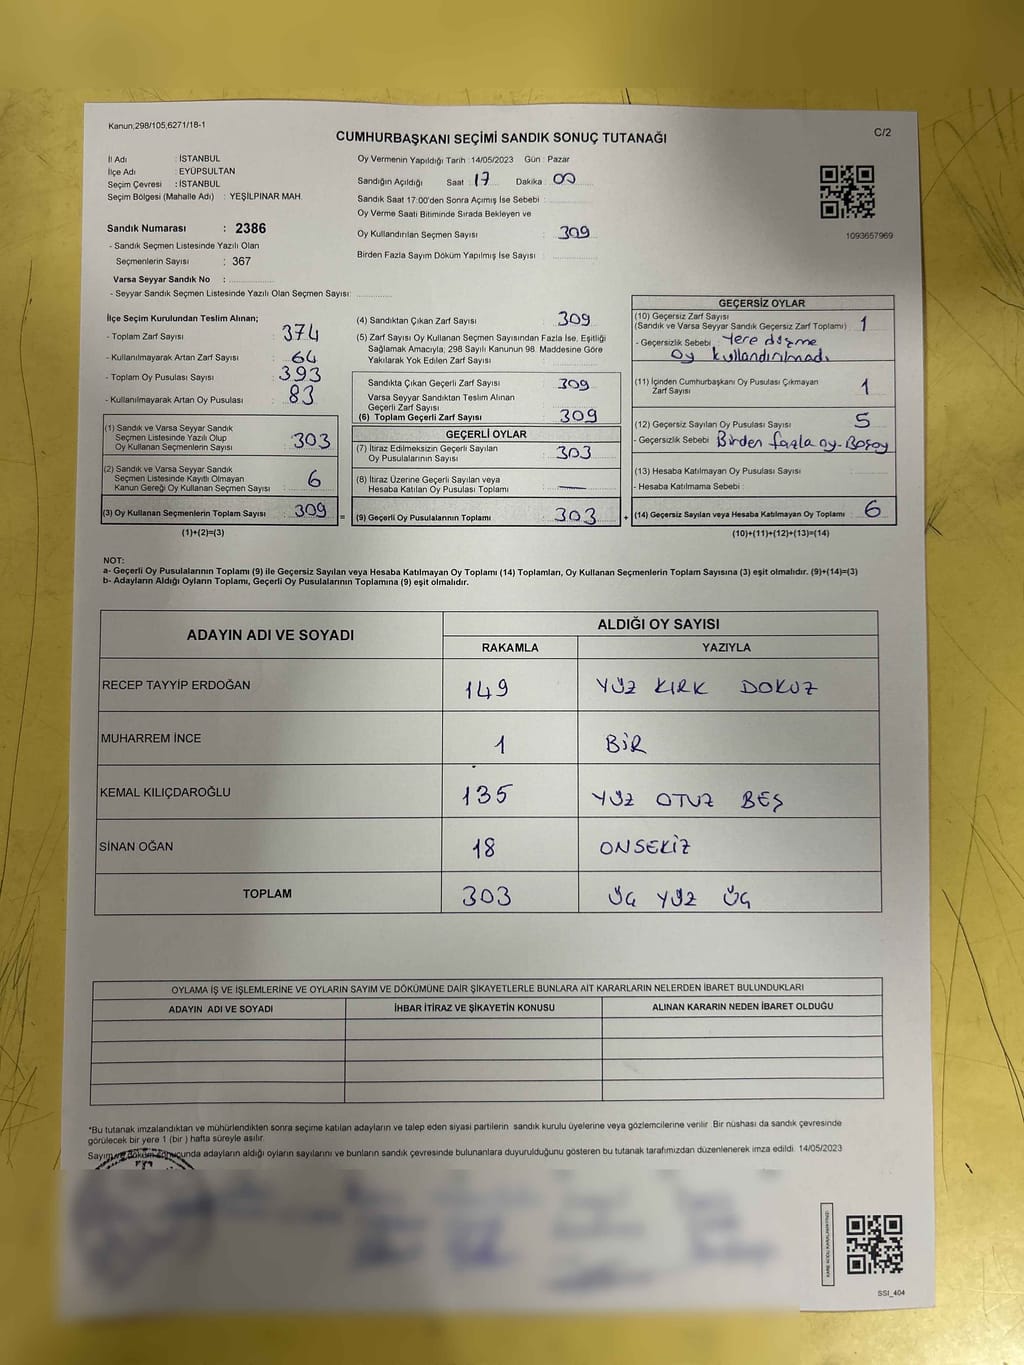 Kanun,298/105,6271/18-1
CUMHURBAŞKANI SEÇİMİ SANDIK SONUÇ TUTANAĞI
C/2
İl Adı : İSTANBUL
İlçe Adı : EYÜPSULTAN
Seçim Çevresi : İSTANBUL
Seçim Bölgesi (Mahalle Adı) : YEŞİLPINAR MAH.
Sandık Numarası : 2386
- Sandık Seçmen Listesinde Yazılı Olan
Seçmenlerin Sayısı : 367
Varsa Seyyar Sandık No :
- Seyyar Sandık Seçmen Listesinde Yazılı Olan Seçmen Sayısı:
Oy Vermenin Yapıldığı Tarih : 14/05/2023 Gün : Pazar
Sandığın Açıldığı Saat 17 Dakika 00
Sandık Saat 17:00'den Sonra Açımış İse Sebebi :
Oy Verme Saati Bitiminde Sırada Bekleyen ve
Oy Kullandırılan Seçmen Sayısı : 309
Birden Fazla Sayım Döküm Yapılmış İse Sayısı :
1093657969
İlçe Seçim Kurulundan Teslim Alınan;
- Toplam Zarf Sayısı : 374
- Kullanılmayarak Artan Zarf Sayısı : 64
- Toplam Oy Pusulası Sayısı : 393
- Kullanılmayarak Artan Oy Pusulası : 83
(1) Sandık ve Varsa Seyyar Sandık
Seçmen Listesinde Yazılı Olup
Oy Kullanan Seçmenlerin Sayısı : 303
(2) Sandık ve Varsa Seyyar Sandık
Seçmen Listesinde Kayıtlı Olmayan
Kanun Gereği Oy Kullanan Seçmen Sayısı : 6
(3) Oy Kullanan Seçmenlerin Toplam Sayısı : 309 =
(1)+(2)=(3)
(4) Sandıktan Çıkan Zarf Sayısı : 309
(5) Zarf Sayısı Oy Kullanan Seçmen Sayısından Fazla İse, Eşitliği
Sağlamak Amacıyla; 298 Sayılı Kanunun 98. Maddesine Göre
Yakılarak Yok Edilen Zarf Sayısı :
Sandıkta Çıkan Geçerli Zarf Sayısı : 309
Varsa Seyyar Sandıktan Teslim Alınan
Geçerli Zarf Sayısı :
(6) Toplam Geçerli Zarf Sayısı : 309
GEÇERLİ OYLAR
(7) İtiraz Edilmeksizin Geçerli Sayılan
Oy Pusulalarının Sayısı : 303
(8) İtiraz Üzerine Geçerli Sayılan veya
Hesaba Katılan Oy Pusulası Toplamı : —
(9) Geçerli Oy Pusulalarının Toplamı : 303 +
GEÇERSİZ OYLAR
(10) Geçersiz Zarf Sayısı
(Sandık ve Varsa Seyyar Sandık Geçersiz Zarf Toplamı) : 1
- Geçersizlik Sebebi : Yere düşme
oy kullandırılmadı
(11) İçinden Cumhurbaşkanı Oy Pusulası Çıkmayan
Zarf Sayısı : 1
(12) Geçersiz Sayılan Oy Pusulası Sayısı : 5
- Geçersizlik Sebebi : Birden fazla oy-Boş oy
(13) Hesaba Katılmayan Oy Pusulası Sayısı :
- Hesaba Katılmama Sebebi :
(14) Geçersiz Sayılan veya Hesaba Katılmayan Oy Toplamı : 6
(10)+(11)+(12)+(13)=(14)
NOT:
a- Geçerli Oy Pusulalarının Toplamı (9) ile Geçersiz Sayılan veya Hesaba Katılmayan Oy Toplamı (14) Toplamları, Oy Kullanan Seçmenlerin Toplam Sayısına (3) eşit olmalıdır. (9)+(14)=(3)
b- Adayların Aldığı Oyların Toplamı, Geçerli Oy Pusulalarının Toplamına (9) eşit olmalıdır.
ADAYIN ADI VE SOYADI
ALDIĞI OY SAYISI
RAKAMLA YAZIYLA
RECEP TAYYİP ERDOĞAN 149 YÜZ KIRK DOKUZ
MUHARREM İNCE 1 BİR
KEMAL KILIÇDAROĞLU 135 YÜZ OTUZ BEŞ
SİNAN OĞAN 18 ONSEKİZ
TOPLAM 303 ÜÇ YÜZ ÜÇ
OYLAMA İŞ VE İŞLEMLERİNE VE OYLARIN SAYIM VE DÖKÜMÜNE DAİR ŞİKAYETLERLE BUNLARA AİT KARARLARIN NELERDEN İBARET BULUNDUKLARI
ADAYIN ADI VE SOYADI İHBAR İTİRAZ VE ŞİKAYETİN KONUSU ALINAN KARARIN NEDEN İBARET OLDUĞU
*Bu tutanak imzalandıktan ve mühürlendikten sonra seçime katılan adayların ve talep eden siyasi partilerin sandık kurulu üyelerine veya gözlemcilerine verilir. Bir nüshası da sandık çevresinde
görülecek bir yere 1 (bir ) hafta süreyle asılır.
Sayım ve döküm sonucunda adayların aldığı oyların sayılarını ve bunların sandık çevresinde bulunanlara duyurulduğunu gösteren bu tutanak tarafımızdan düzenlenerek imza edildi. 14/05/2023
SSI_404